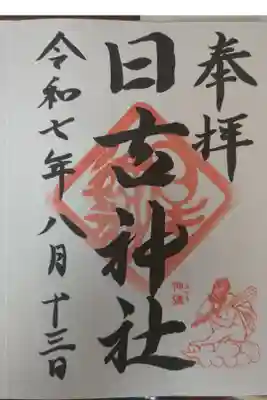 奉拝
日古神社
令和七年八月十三日